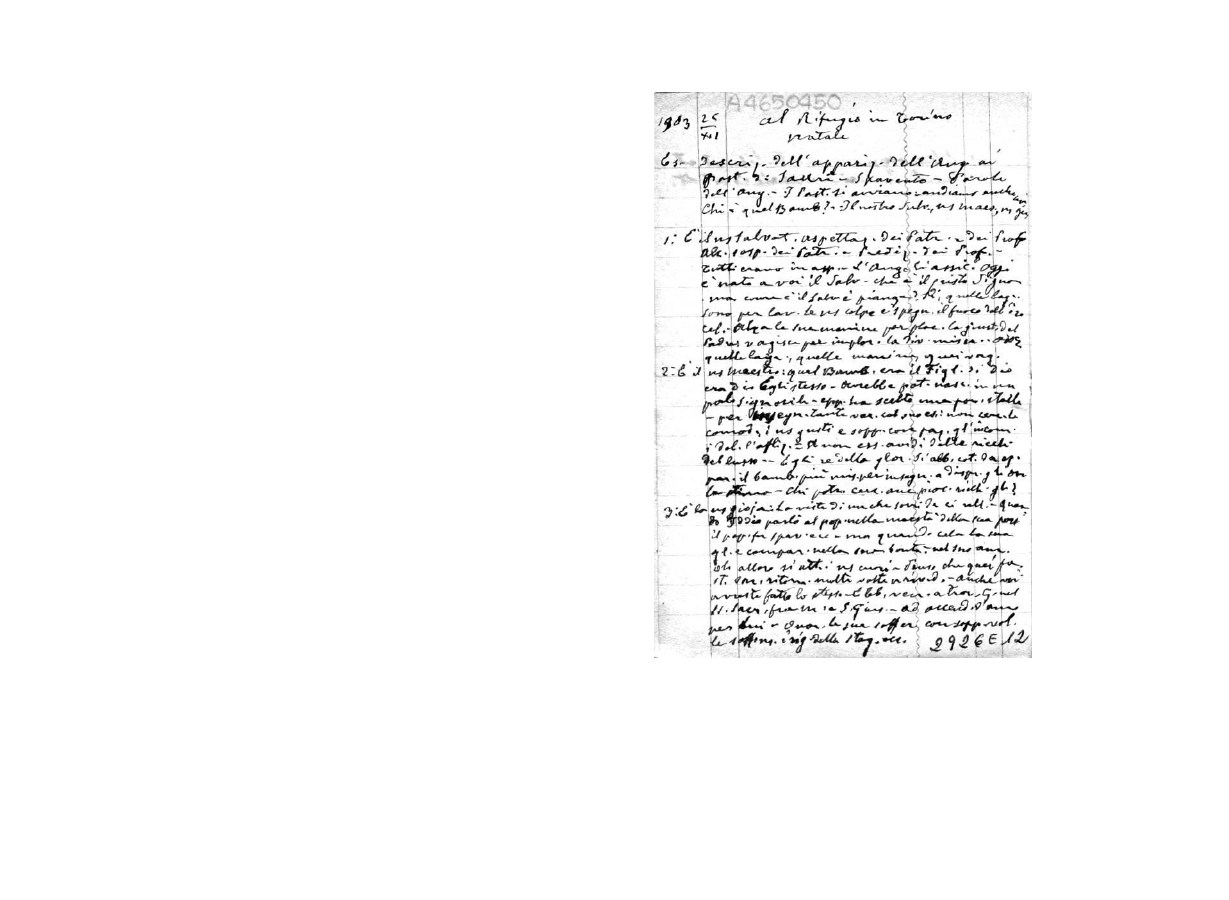 A4650450
1903 25/XII al Rifugio in Torino
natale
Es. Descriz. dell'appariz. dell'Ang. ai
Past. di - Spavento - Parole
dell'Ang. - I Past. si avviano: andiamo anche
Chi è quel Bamb.? - Il nostro Salv., ns maes., ns
1: È il ns Salvat. aspettaz. dei Patr. e dei Prof
sosp. dei Patr. - e Prediz. dei Prof. -
tutti erano in asp. - L'Ang. li assic. Oggi
è nato a voi il Salv - che è il Cristo Signor
- ma come è il Salv. è piang. Sì, quelle lagr.
sono per lav. le ns colpe e spegn. il fuoco dell'ira
cel. - Alza le sue manine per plac. la giust. del
Padre vagisce per implor. la div. miser. -
quelle lagr., quelle manine, quei vag.
2: È il ns maestro: quel Bamb. era il Figl. di Dio
era Dio Egli stesso - Avrebbe pot. nasc. in un
signorile - epp. ha scelto una pov. stalla
- per insegn. tante ver. col suo es: non cerc. le
comod., i ns gusti e sopp. con paz. gl'incom.
i dol. l'afliz. = A non ess. avidi delle ricch.
del lusso - Egli re della glor. si abb. cot. da ap-
par. il bamb. più mis. per insegn. a dispr. gli on
la - Chi potrà cerc. anc. ricch. gl.?
3: È la ns gioja: la vista di un che ci rall. - Quan
do Iddio parlò al pop. nella maestà della sua
il pop. fu spav. ecc - ma quando cela la sua
gl. e compar. nella sua bontà, nel suo am.
allora si att. i ns cuori - Penso che quei pa-
st. ritorn. molte volte a rived. - anche voi
avreste fatto lo stesso - Ebb. ven. a trov. G. nel
SS. Sacr., fra m. e S. Gius. - ad accend. d'am
per Lui - Quan. le sue soffer. con sopp. vol.
le soffer. i rig. della stag. ecc.
2926E12